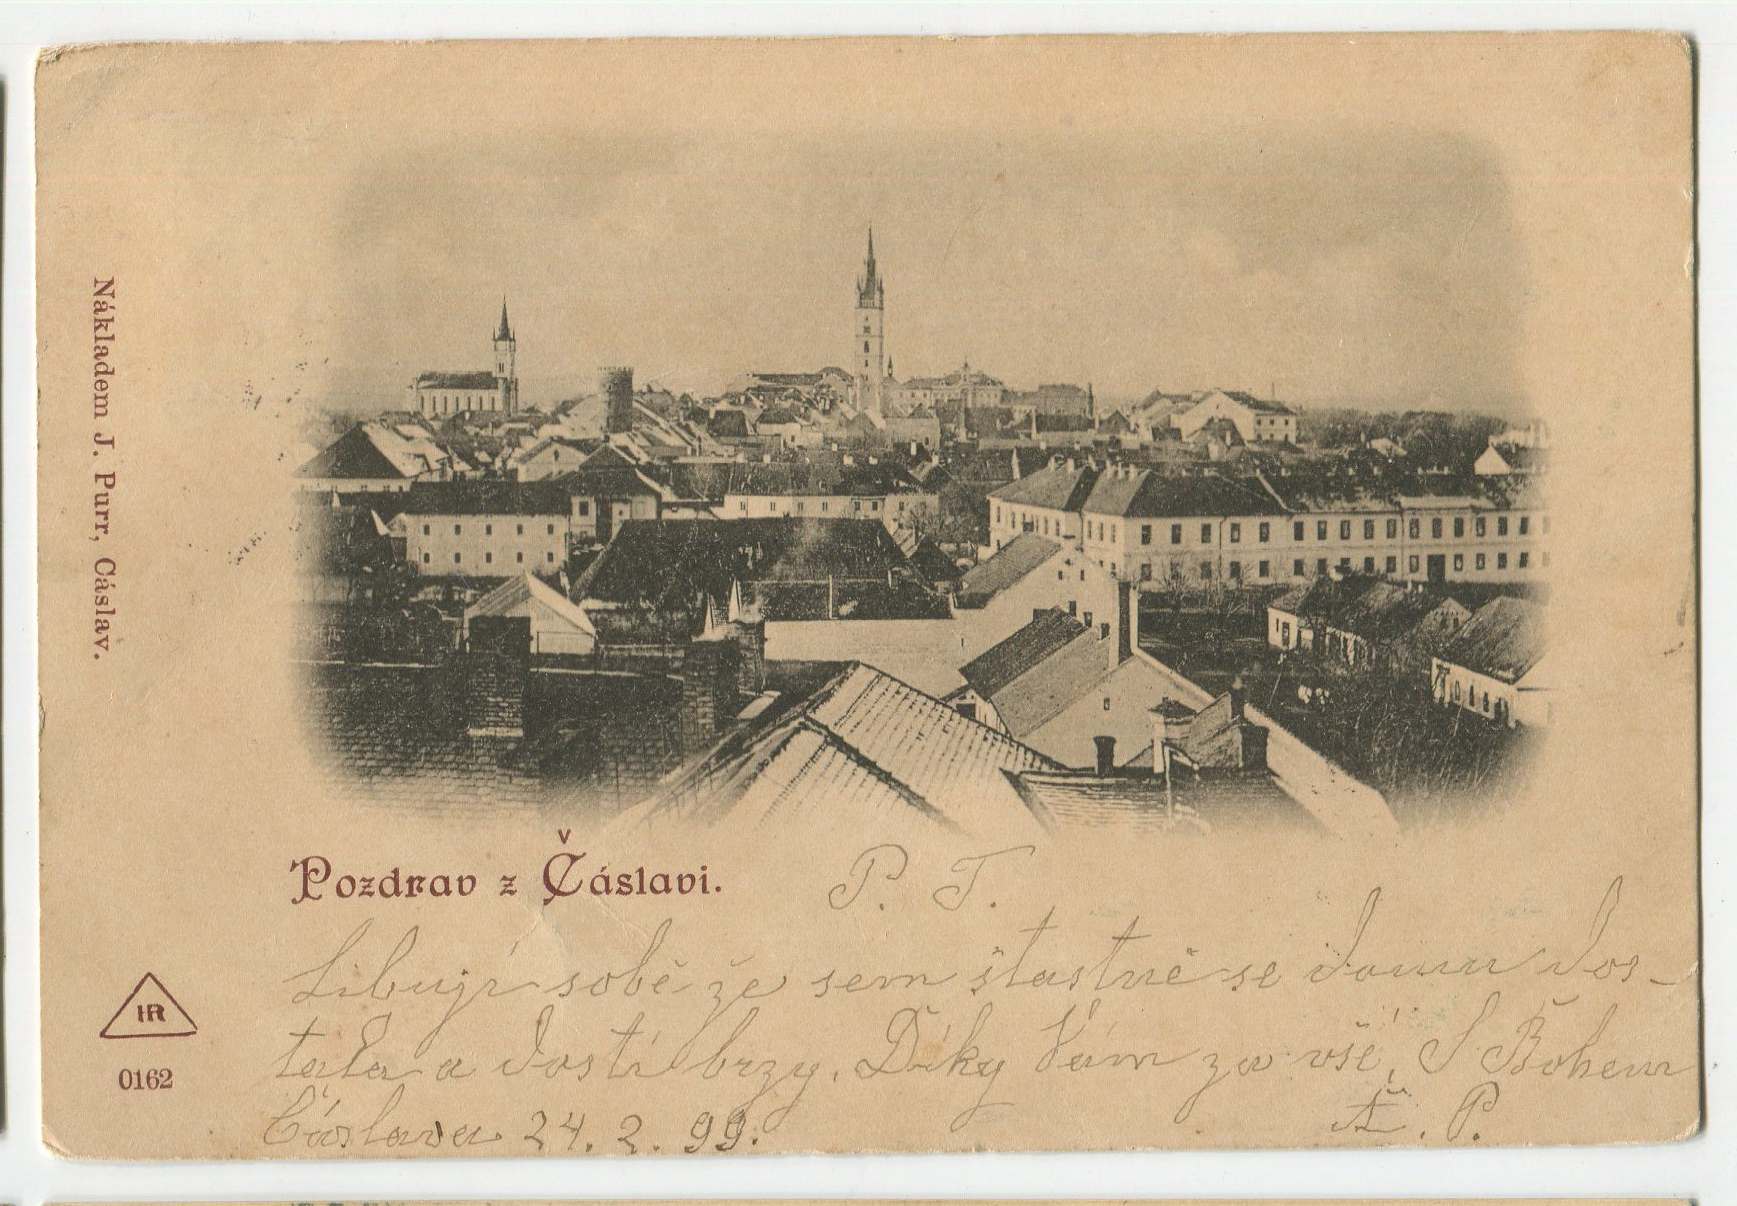 Nákladem J. Purr, Čáslav.
Pozdrav z Čáslavi.
P. T.
Libuji sobě že sem štastně se domu dos-
tala a dosti brzy. Díky Vám za vše, S Bohem
Čáslava 24. 2. 99.
P.
HR
0162